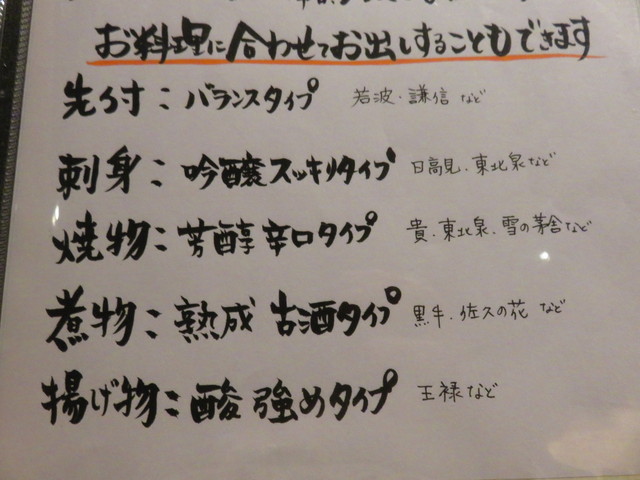 お料理に合わせてお出しすることもできます
先付：バランスタイプ 若波・謙信 など
刺身：吟醸スッキリタイプ 日高見・東北泉など
焼物：芳醇辛口タイプ 貴・東北泉・雪の茅舎など
煮物：熟成 古酒タイプ 黒牛・佐久の花 など
揚げ物：酸 強めタイプ 王禄など